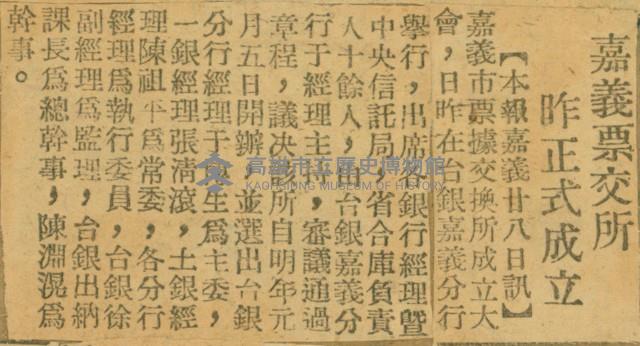 嘉義票交所
昨正式成立
【本報嘉義廿八日訊】
嘉義市票據交換所成立大
會，日昨在台銀嘉義分行
舉行，出席銀行經理曁
中央信託局，省合庫負責
人十餘人，由台銀嘉義分
行于經理主持，審議通過
章程，議决該所自明年元
月五日開辦，並選出台銀
分行經理于生爲主委，
一銀經理張淸滾，土銀經
理陳祖平爲常委，各分行
經理爲執行委員，台銀徐
副經理爲監理，台銀出納
課長爲總幹事，陳淵滉爲
幹事。
高雄市立歷史博物館
KAOHSIUNG MUSEUM OF HISTORY